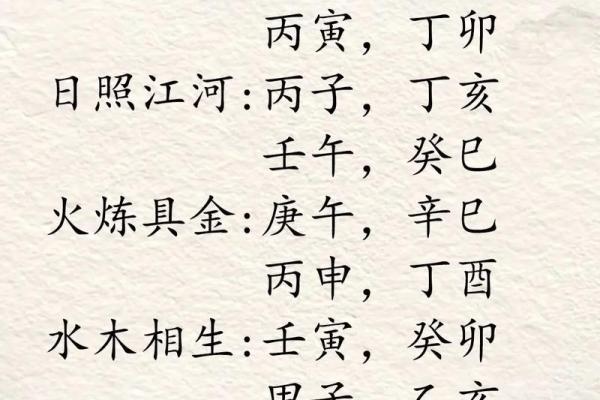 丙寅，丁卯
日照江河:丙子，丁亥
壬午，癸巳
火炼具金:庚午，辛巳
丙申，丁酉
水木相生:壬寅，癸卯
甲子，乙亥